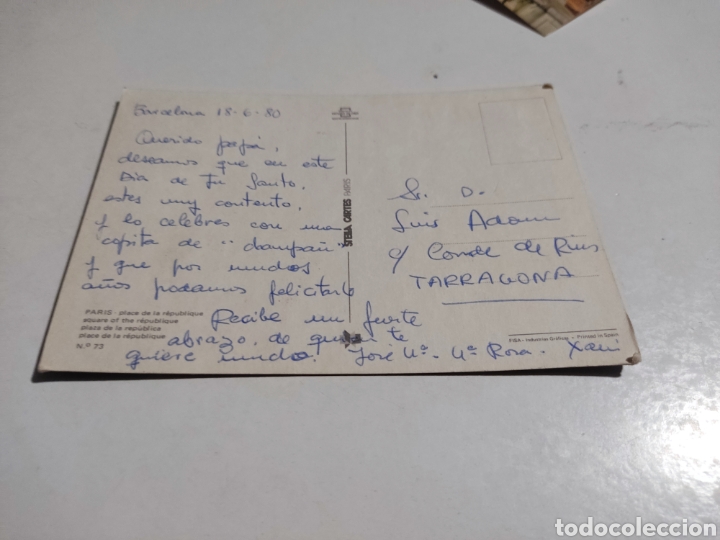 Barcelona 18-6-80
Querido papá,
deseamos que en este
Dia de tu Santo,
estes muy contento,
y lo celebres con una
copita de "champañ"
y que por muchos
años podamos felicitarte
Recibe un fuerte
abrazo, de quien te
quiere mucho. José Mª. Mª Rosa. Xavi
Sr. D.
Luis Adam
c/ Conde de Rius
TARRAGONA
STEBA CARTES PARIS
PARIS - place de la république
square of the république
plaza de la república
place de la république
N.º 73
Printed in Spain
todocoleccion